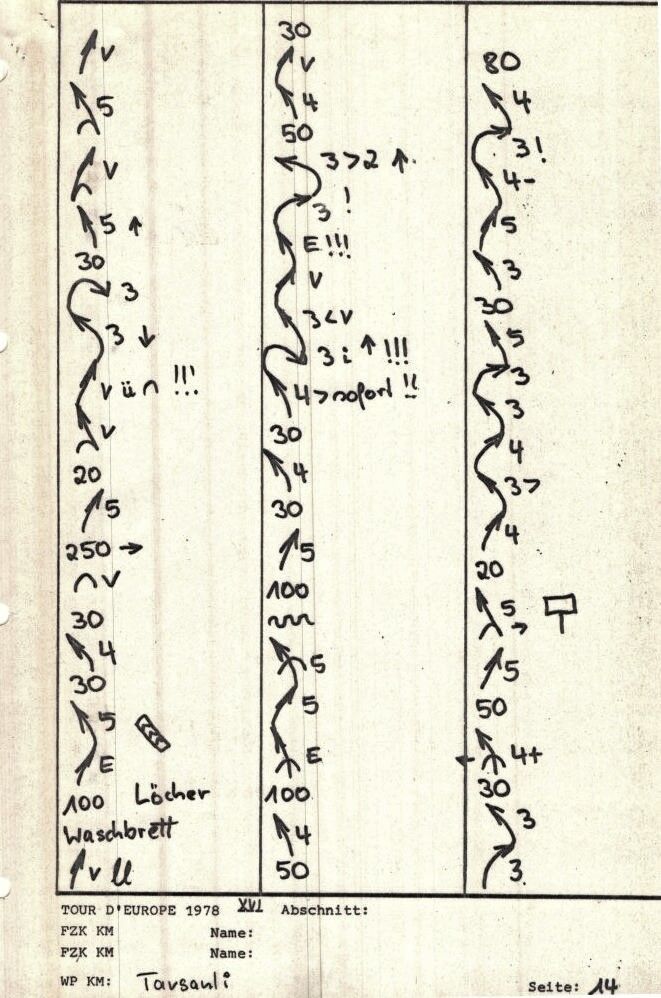 V
5
V
5 ↑
30
3
3 ↓
V ü ∩ !!!
V
20
5
250 →
∩ V
30
4
30
5
E
100 Löcher
Waschbrett
V
30
V
4
50
3 > 2 ↑
3 !
E !!!
V
3 < V
3 i ↑ !!!
4 > sofort !!
30
4
30
5
100
5
5
E
100
4
50
80
4
3 !
4-
5
3
30
5
3
3
4
3 >
4
20
5
5
50
4+
30
3
3
TOUR D'EUROPE 1978 XVI Abschnitt:
FZK KM Name:
FZK KM Name:
WP KM: Tavsanli
Seite: 14